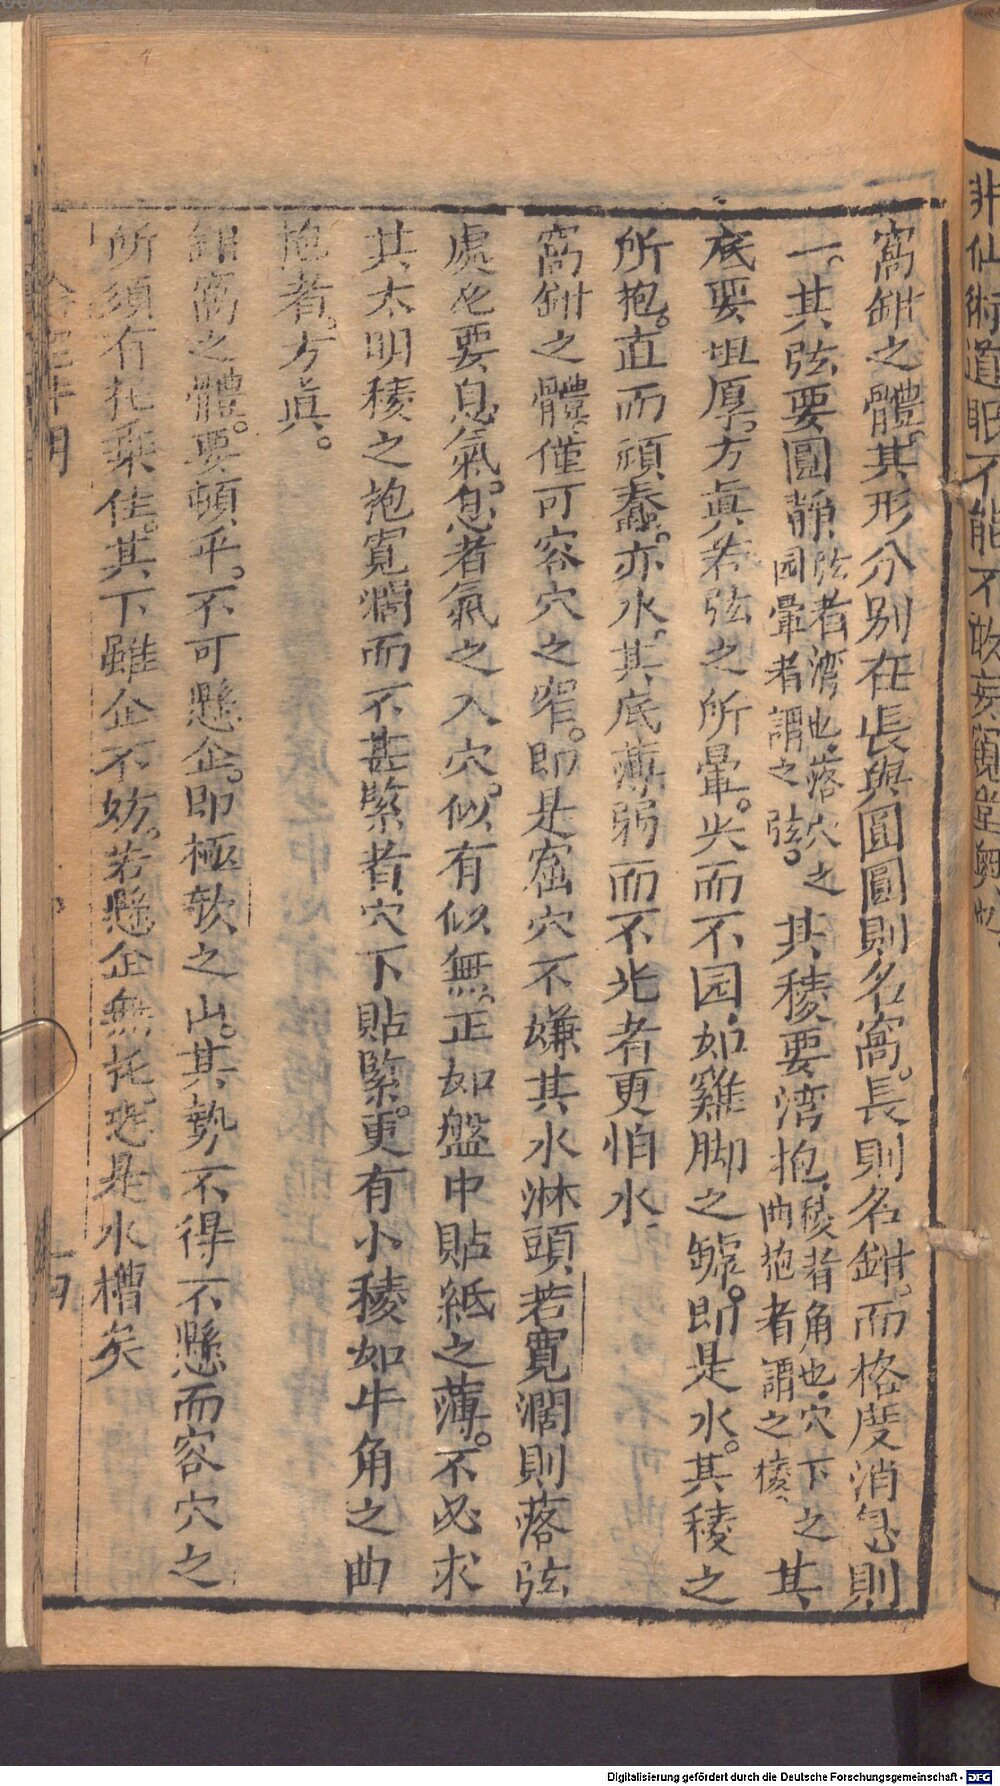 非仙術道眼不能不敢妄窺堂奧也
窩鉗之體其形分別在長與圓圓則名窩。長則名鉗。而格度消息則
一。其弦要圓静弦者湾也落穴之园暈者謂之弦。其稜要湾抱稜者角也穴下之曲抱者謂之稜其
底要坦厚。方眞若弦之所暈。尖而不园如雞脚之罅。即是水。其稜之
所抱。直而頑蠢。亦水。其底薄弱而不光者更怕水
窩鉗之體。僅可容穴之窄。即是窟穴不嫌其水淋頭若寬濶則落弦
處必要息氣。息者氣之入穴。似有似無。正如盤中貼紙之薄。不必求
其太明稜之抱寬濶而不甚緊者穴下貼緊。更有小稜如牛角之曲
抱者。方眞。
鉗窩之體。要頓平。不可懸企。即極軟之山。其勢不得不懸而容穴之
所須有托乘佳。其下雖企不妨。若懸企無托恐是水槽矣
Digitalisierung gefördert durch die Deutsche Forschungsgemeinschaft - DFG